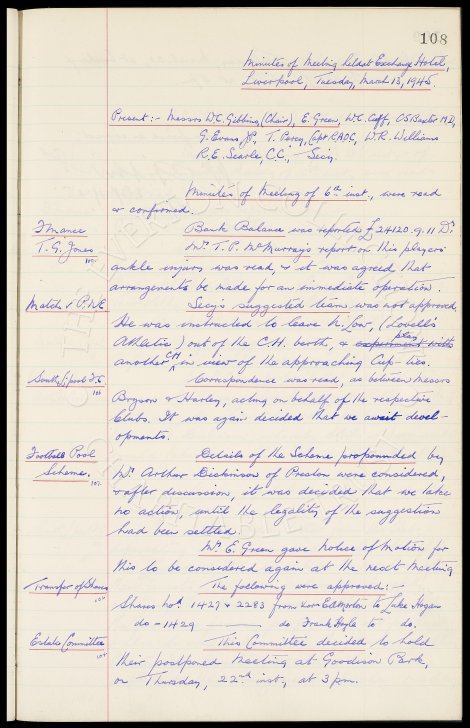 108
Minutes of Meeting held at Exchange Hotel,
Liverpool, Tuesday, March 13, 1945.
Present :- Messrs W.C. Gibbins, (Chair), E. Green, W.C. Cuff, C.S. Baxter M.D,
G. Evans J.P., T. Percy, Capt. RAOC, W.R. Williams
R.E. Searle, C.C., — Secy.
Minutes of Meeting of 6th inst., were read
& confirmed.
Finance Bank Balance was reported £24120. 9. 11 Dr.
T. G. Jones Mr. T. P. McMurray's report on this players
ankle injury was read, & it was agreed that
arrangements be made for an immediate operation.
Match v. P.N.E. Secy's suggested team was not approved,
He was instructed to leave H. Low, (Lovell's
Athletic) out of the C.H. berth, & play
another C.H. in view of the approaching Cup-ties.
South L'pool F.C. Correspondence was read, as between Messrs
106
Bryson & Harley, acting on behalf of the respective
Clubs. It was again decided that we await devel-
opments.
Football Pool Details of the Scheme propounded by
Scheme. Mr. Arthur Dickinson of Preston were considered,
107.
& after discussion, it was decided that we take
no action until the legality of the suggestion
had been settled.
Mr. E. Green gave Notice of Motion for
this to be considered again at the next Meeting
Transfer of Shares The following were approved :-
Shares Nos. 1427 & 2283 from to Luke Hogan
do - 1429 —— do Frank Hoyle to do.
Estate Committee This Committee decided to hold
their postponed Meeting at Goodison Park,
on Thursday, 22nd inst, at 3pm.